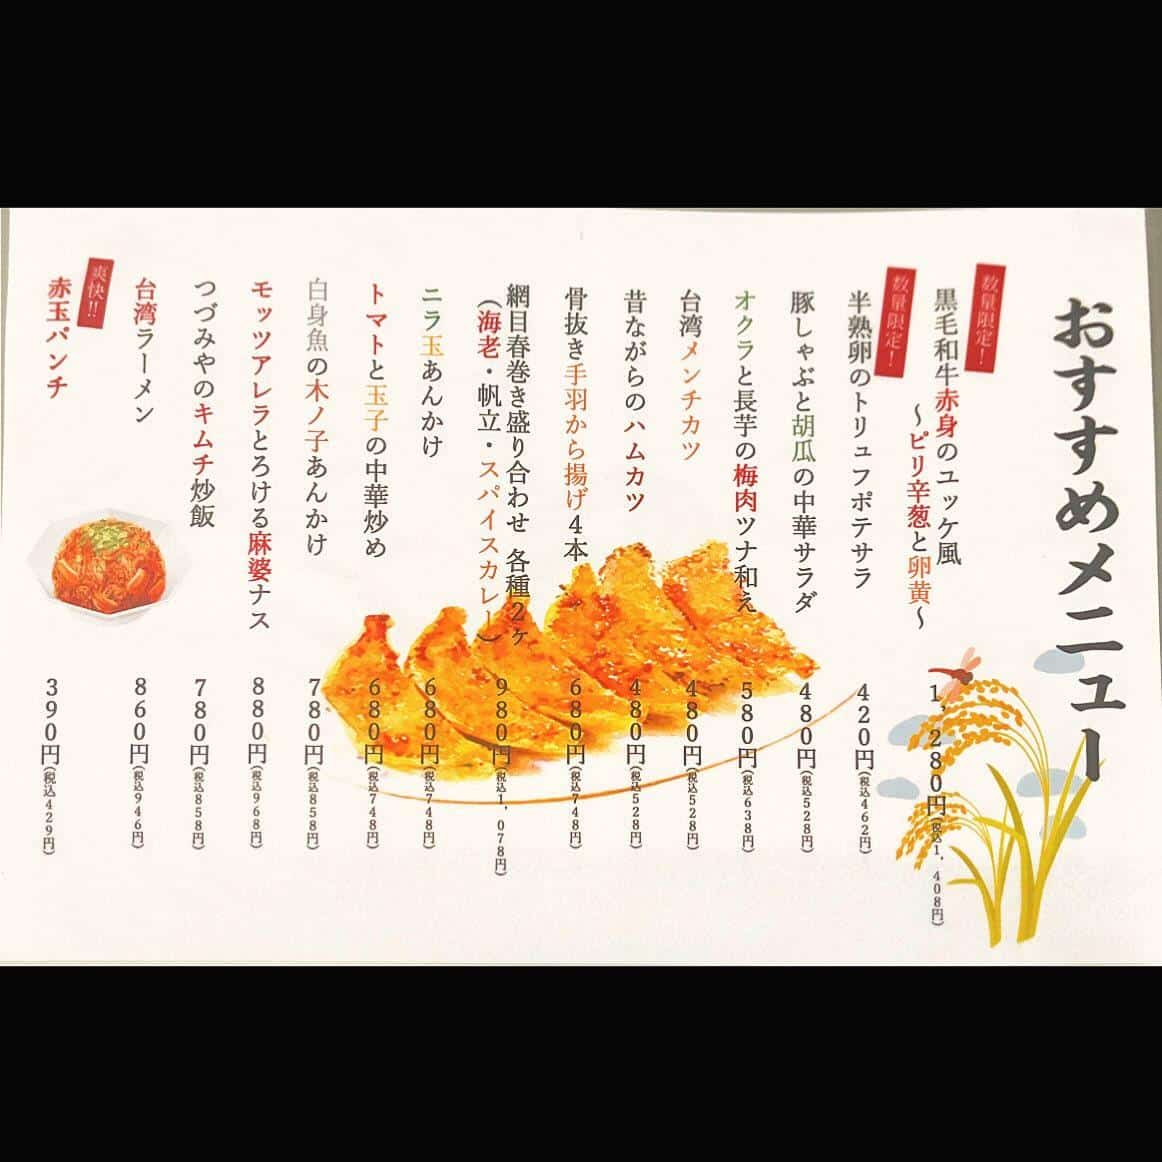 おすすめメニュー
数量限定！
黒毛和牛赤身のユッケ風
～ピリ辛葱と卵黄～
1,280円(税込1,408円)
数量限定！
半熟卵のトリュフポテサラ
420円(税込462円)
豚しゃぶと胡瓜の中華サラダ
480円(税込528円)
オクラと長芋の梅肉ツナ和え
580円(税込638円)
台湾メンチカツ
480円(税込528円)
昔ながらのハムカツ
480円(税込528円)
骨抜き手羽から揚げ4本
680円(税込748円)
網目春巻き盛り合わせ 各種2ヶ
(海老・帆立・スパイスカレー)
980円(税込1,078円)
ニラ玉あんかけ
680円(税込748円)
トマトと玉子の中華炒め
680円(税込748円)
白身魚の木ノ子あんかけ
780円(税込858円)
モッツアレラとろける麻婆ナス
880円(税込968円)
つづみやのキムチ炒飯
780円(税込858円)
台湾ラーメン
860円(税込946円)
爽快!!
赤玉パンチ
390円(税込429円)